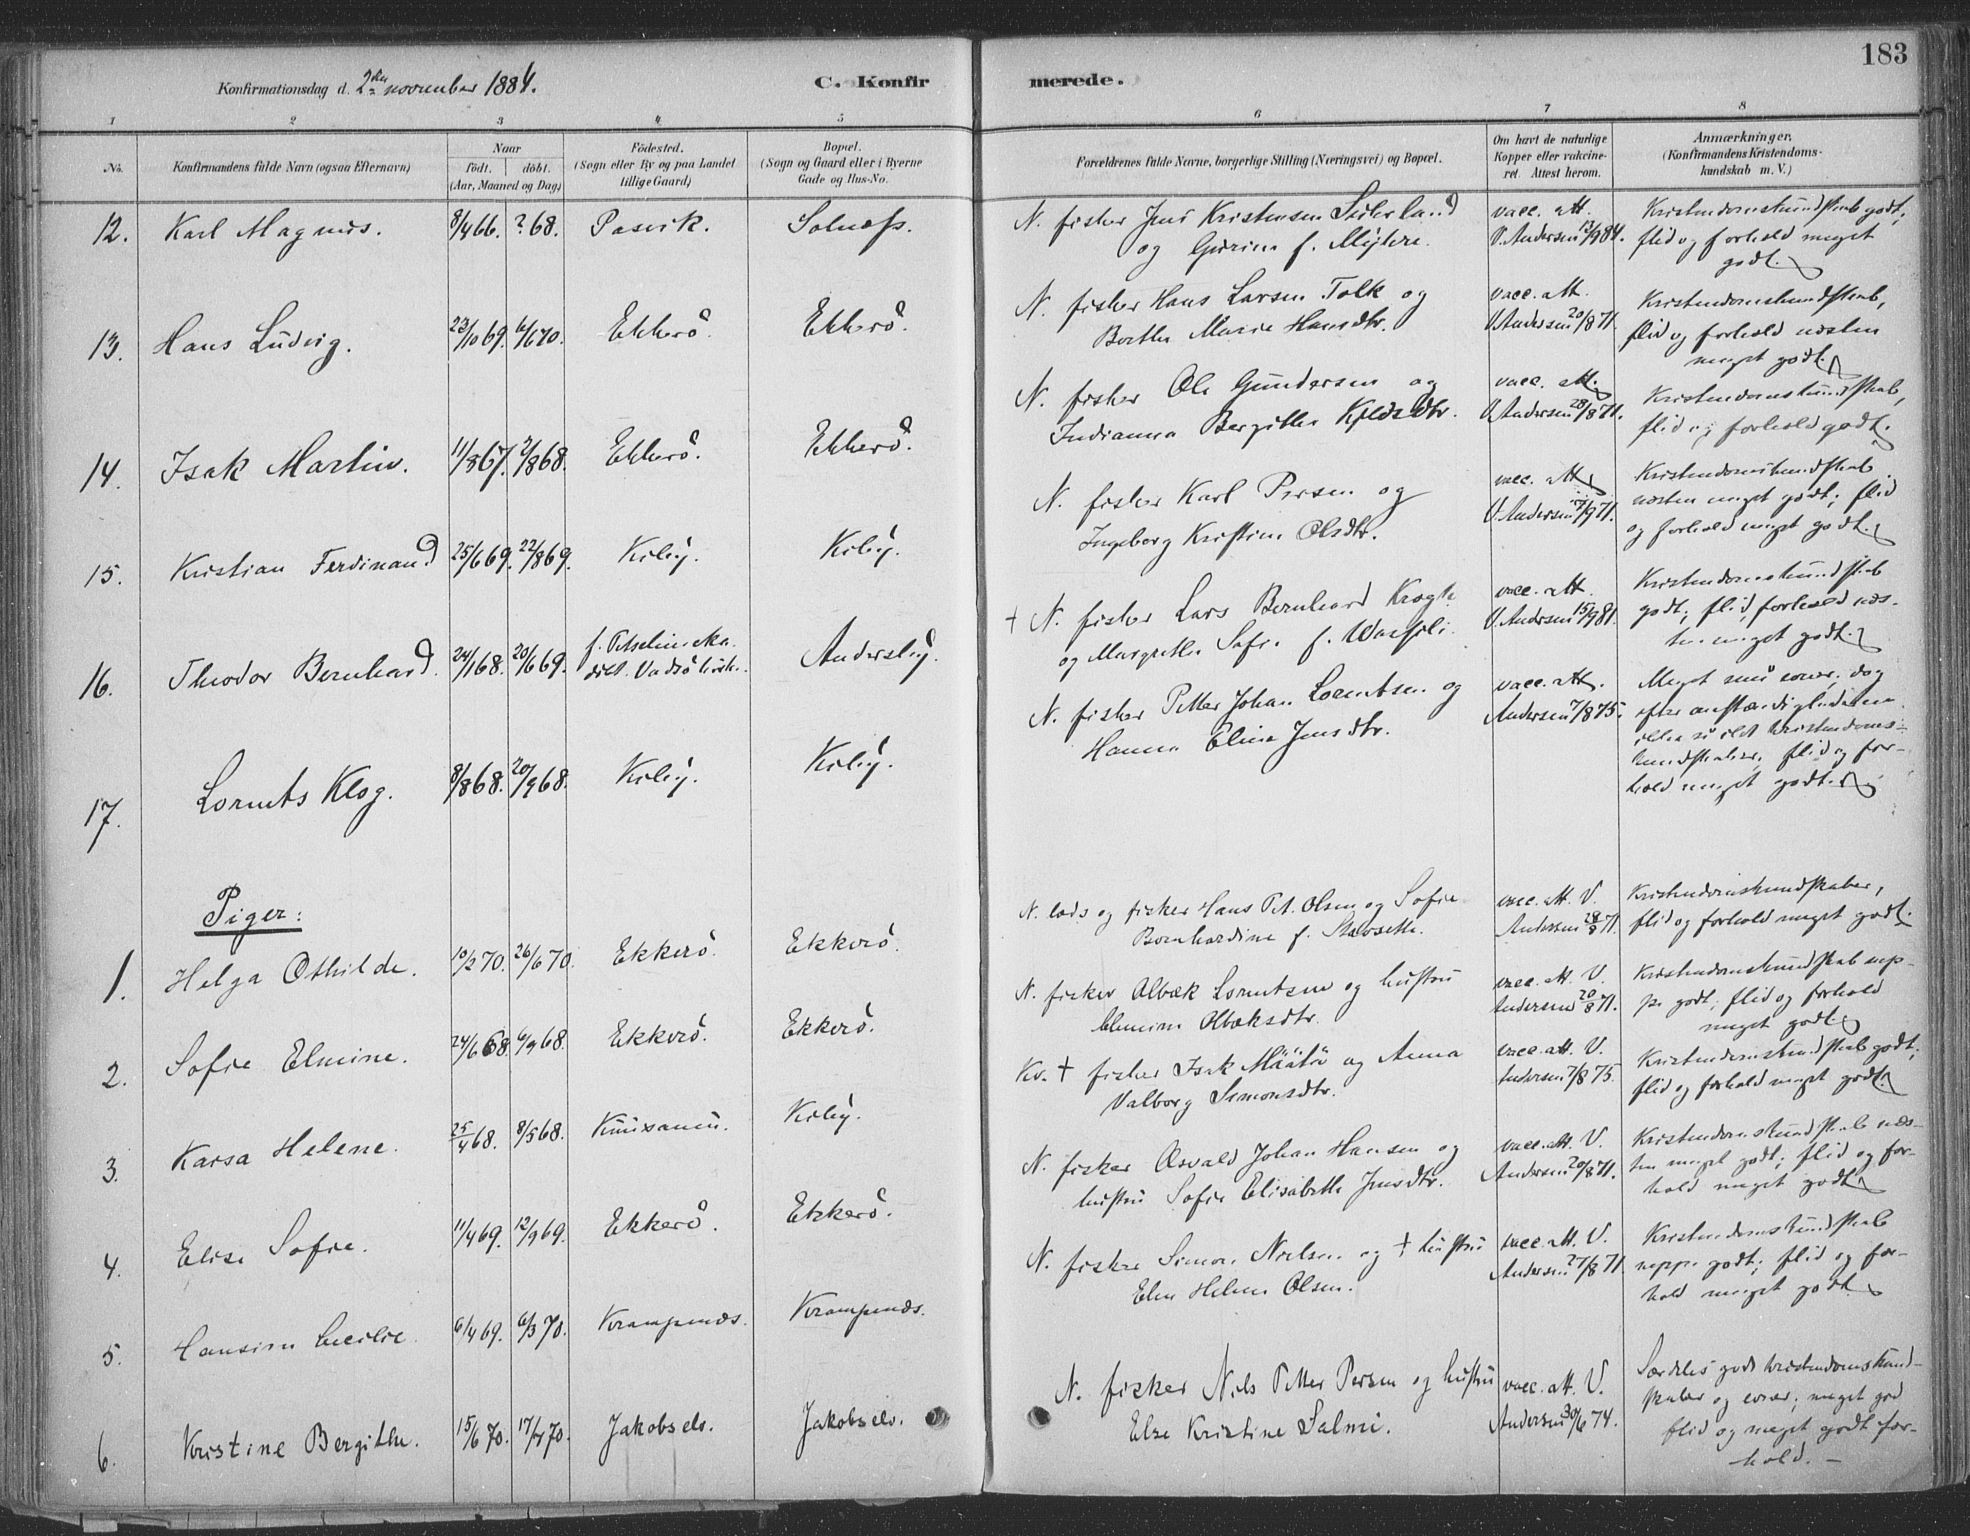 183
Konfirmationsdag d. 2den november 1884.
C. Konfirmerede.
1 2 3 4 5 6 7 8
No. Konfirmandens fulde Navn (ogsaa Efternavn) Naar født. døbt. (Aar, Maaned og Dag) Fødested. (Sogn eller By og paa Landet tillige Gaard) Bopæl. (Sogn og Gaard eller i Byerne Gade og Hus-No. Forældrenes fulde Navne, borgerlige Stilling (Næringsvei) og Bopæl. Om havt de naturlige Kopper eller vakcineret. Attest herom. Anmærkninger. (Konfirmandens Kristendomskundskab m. V.)
12. Karl Magnus. 8/4 66. ? 68. Pasvik. Solnæss.
N. fisker Jens Kristensen og
vacc. att. V. Andersen 13/9 84.
Kristendomskundskab godt;
flid og forhold meget
godt.
13. Hans Ludvig. 23/10 69. 6/6 70. Ekkerö. Ekkerö.
N. fisker Hans Larsen Tolk og
Berthe Marie Hansdtr.
vacc. att.
V. Andersen 20/8 71.
Kristendomskundskab,
flid og forhold næsten
meget godt.
14. Isak Martin. 11/8 67. 2/8 68. Ekkerö. Ekkerö.
N. fisker Ole Gundersen og
Indianna Bergitte Kjeldsdtr.
vacc. att.
V. Andersen 28/8 71.
Kristendomskundskab,
flid og forhold godt.
15. Kristian Ferdinand 25/6 69. 22/8 69. Kiby. Kiby.
N. fisker Karl Persen og
Ingeborg Kristine Olsdtr.
vacc. att.
V. Andersen 9 71.
Kristendomskundskab
næsten meget godt; flid
og forhold meget godt.
16. Theodor Bernhard. 24/1 68. 20/6 69. Vadsö Andersby.
† N. fisker Lars Bernhard
og Margrethe Sofie f.
vacc. att.
V. Andersen 15/9 81.
Kristendomskundskab
godt; flid, forhold næs-
ten meget godt.
17. Lorents Klog. 8/8 68. 20/9 68. Kiby. Kiby.
N. fisker Petter Johan Lorentsen og
Hanna Eline Jensdtr.
vacc. att.
Andersen 7/8 75.
Meget små evner; dog
efter omstændighederne
ikke så ilde kristendoms-
kundskaber, flid og for-
hold meget godt.
Piger:
1. Helga Othilde. 10/2 70. 26/6 70. Ekkerö. Ekkerö.
N. lods og fisker Hans Pet. Olsen og Sofie
Bernhardine f.
vacc. att. V.
Andersen 28/8 71.
Kristendomskundskaber,
flid og forhold meget godt.
2. Sofie Elmine. 24/6 68. 6/9 68. Ekkerö. Ekkerö.
N. fisker Albæk Lorentsen og hustru
Elmine Olbæksdtr.
vacc. att. V.
Andersen 20/8 71.
Kristendomskundskab nep-
pe godt; flid og forhold
meget godt.
3. Karsa Helene. 25/4 68. 8/5 68. Kiby.
Kv. † fisker Isak Määtö og Anna
Valborg Simonsdtr.
vacc. att. V.
Andersen 7/8 75.
Kristendomskundskab godt;
flid og forhold meget godt.
4. Elise Sofie. 11/4 69. 12/9 69. Ekkerö. Ekkerö.
N. fisker Osvald Johan Hansen og
hustru Sofie Elisabeth Jensdtr.
vacc. att. V.
Andersen 20/8 71.
Kristendomskundskab næs-
ten meget godt; flid og for-
hold meget godt.
5. Hansine Cecilie 6/4 69. 6/3 70. Krampenæs. Krampenæs.
N. fisker Simon Nielsen og † hustru
Elen Helene Olsen.
vacc. att. V.
Andersen 27/8 71
Kristendomskundskab
neppe godt; flid og for-
hold meget godt.
6. Kristine Bergithe. 15/6 70. 17/7 70. Jakobselv. Jakobselv.
N. fisker Niels Petter Persen og hustru
Else Kristine Salmi.
vacc. att. V.
Andersen 30/6 74.
Særdeles gode kristendomskund-
skaber og evner; meget god
flid og meget godt for-
hold.